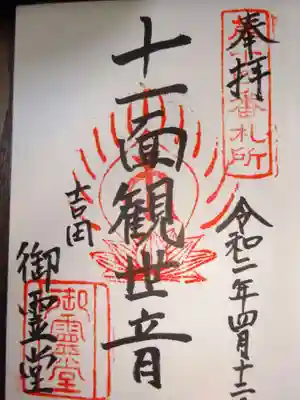 奉拝
番札所
令和二年四月十二
十一面観世音
吉田
御霊堂
御霊堂